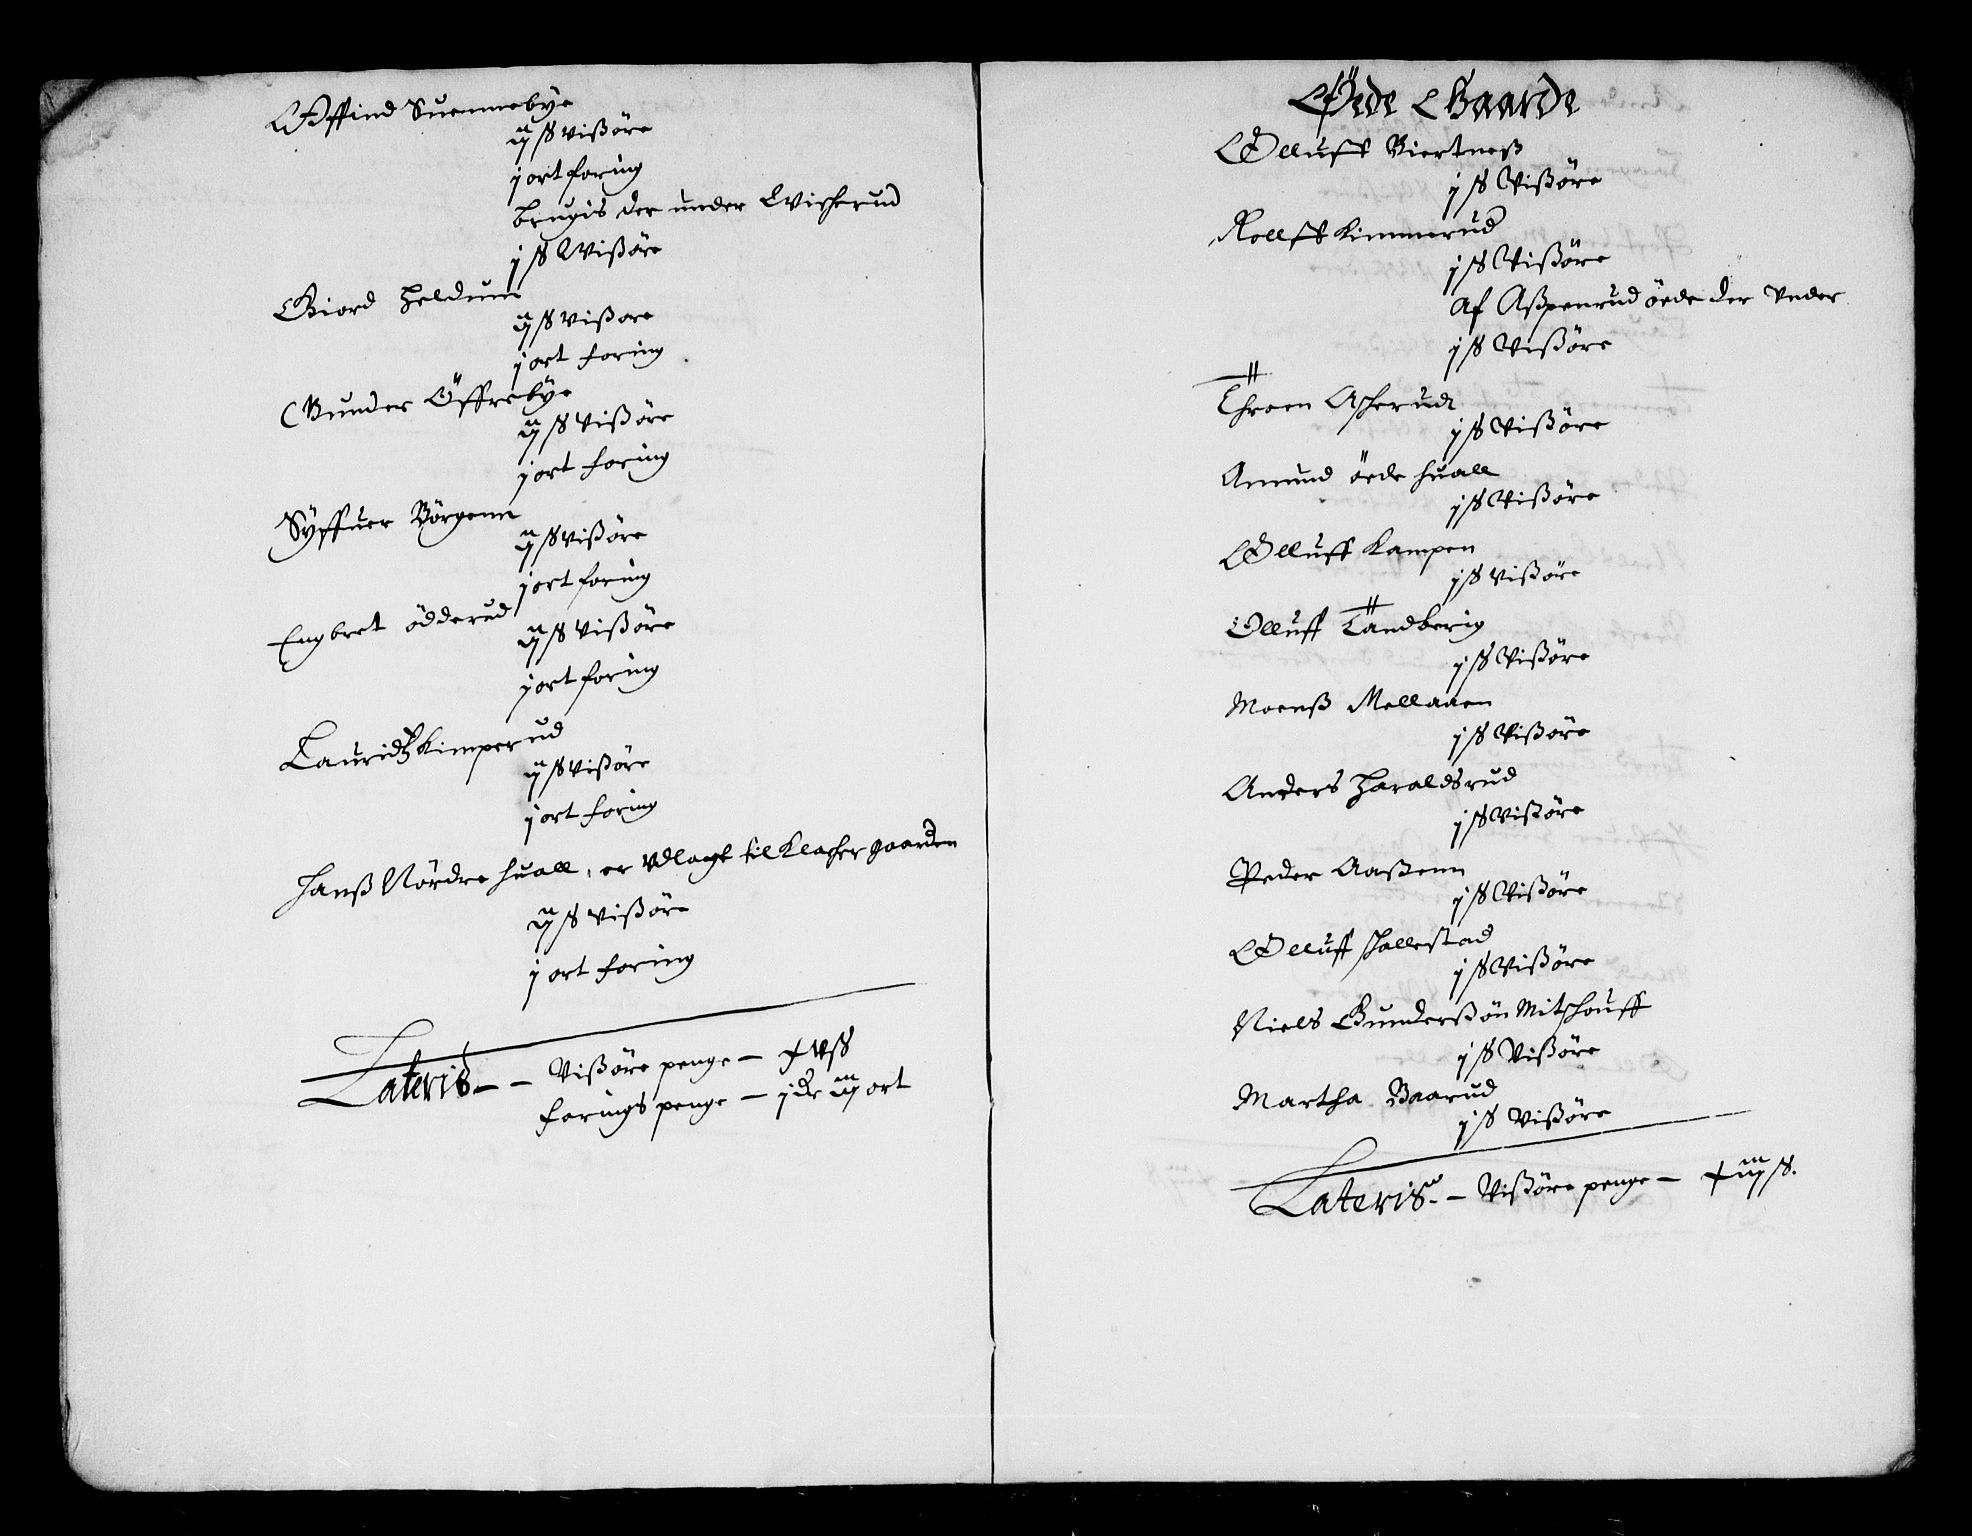 Offind Suennebÿe
ij ß vißöre
j ort foring
brugis der under Evicherud
j ß Wißöre
Giord Heldum
ij ß vißore
j ort foring
Gunder Öffrebÿe
ij ß vißöre
j ort foring
Sÿffuer Börgenn
ij ß vißöre
j ort foring
Engbret ödderud
ij ß vißöre
j ort foring
Lauridtz Kimperud
ij ß vißöre
j ort foring
Hanß Nördre huall, er vdlagt til Klocher gaarden
ij ß vißöre
j ort foring
Lateris – – Vißöre penge – xv ß
forings penge – j dr iij ort
Öede Gaarde
Olluff Biertneß
j ß Vißöre
Rolff Kimmerud
j ß Vißöre
Af Aßpenrud öede der Vnder
j ß Vißöre
Throen Acherud
j ß Vißöre
Amund öede huall
j ß Vißöre
Olluff Kampen
j ß vißöre
Olluff Tandberig
j ß Vißöre
Moenß Mellaaen
j ß Vißöre
Anders Haraldsrud
j ß Vißöre
Peder Aaßenn
j ß Vißöre
Olluff Hallestad
j ß Vißöre
Niels Gunderßön Mitshouff
j ß Vißöre
Martha Baarud
j ß Vißöre
Lateris – – Vißöre penge – xiij ß.